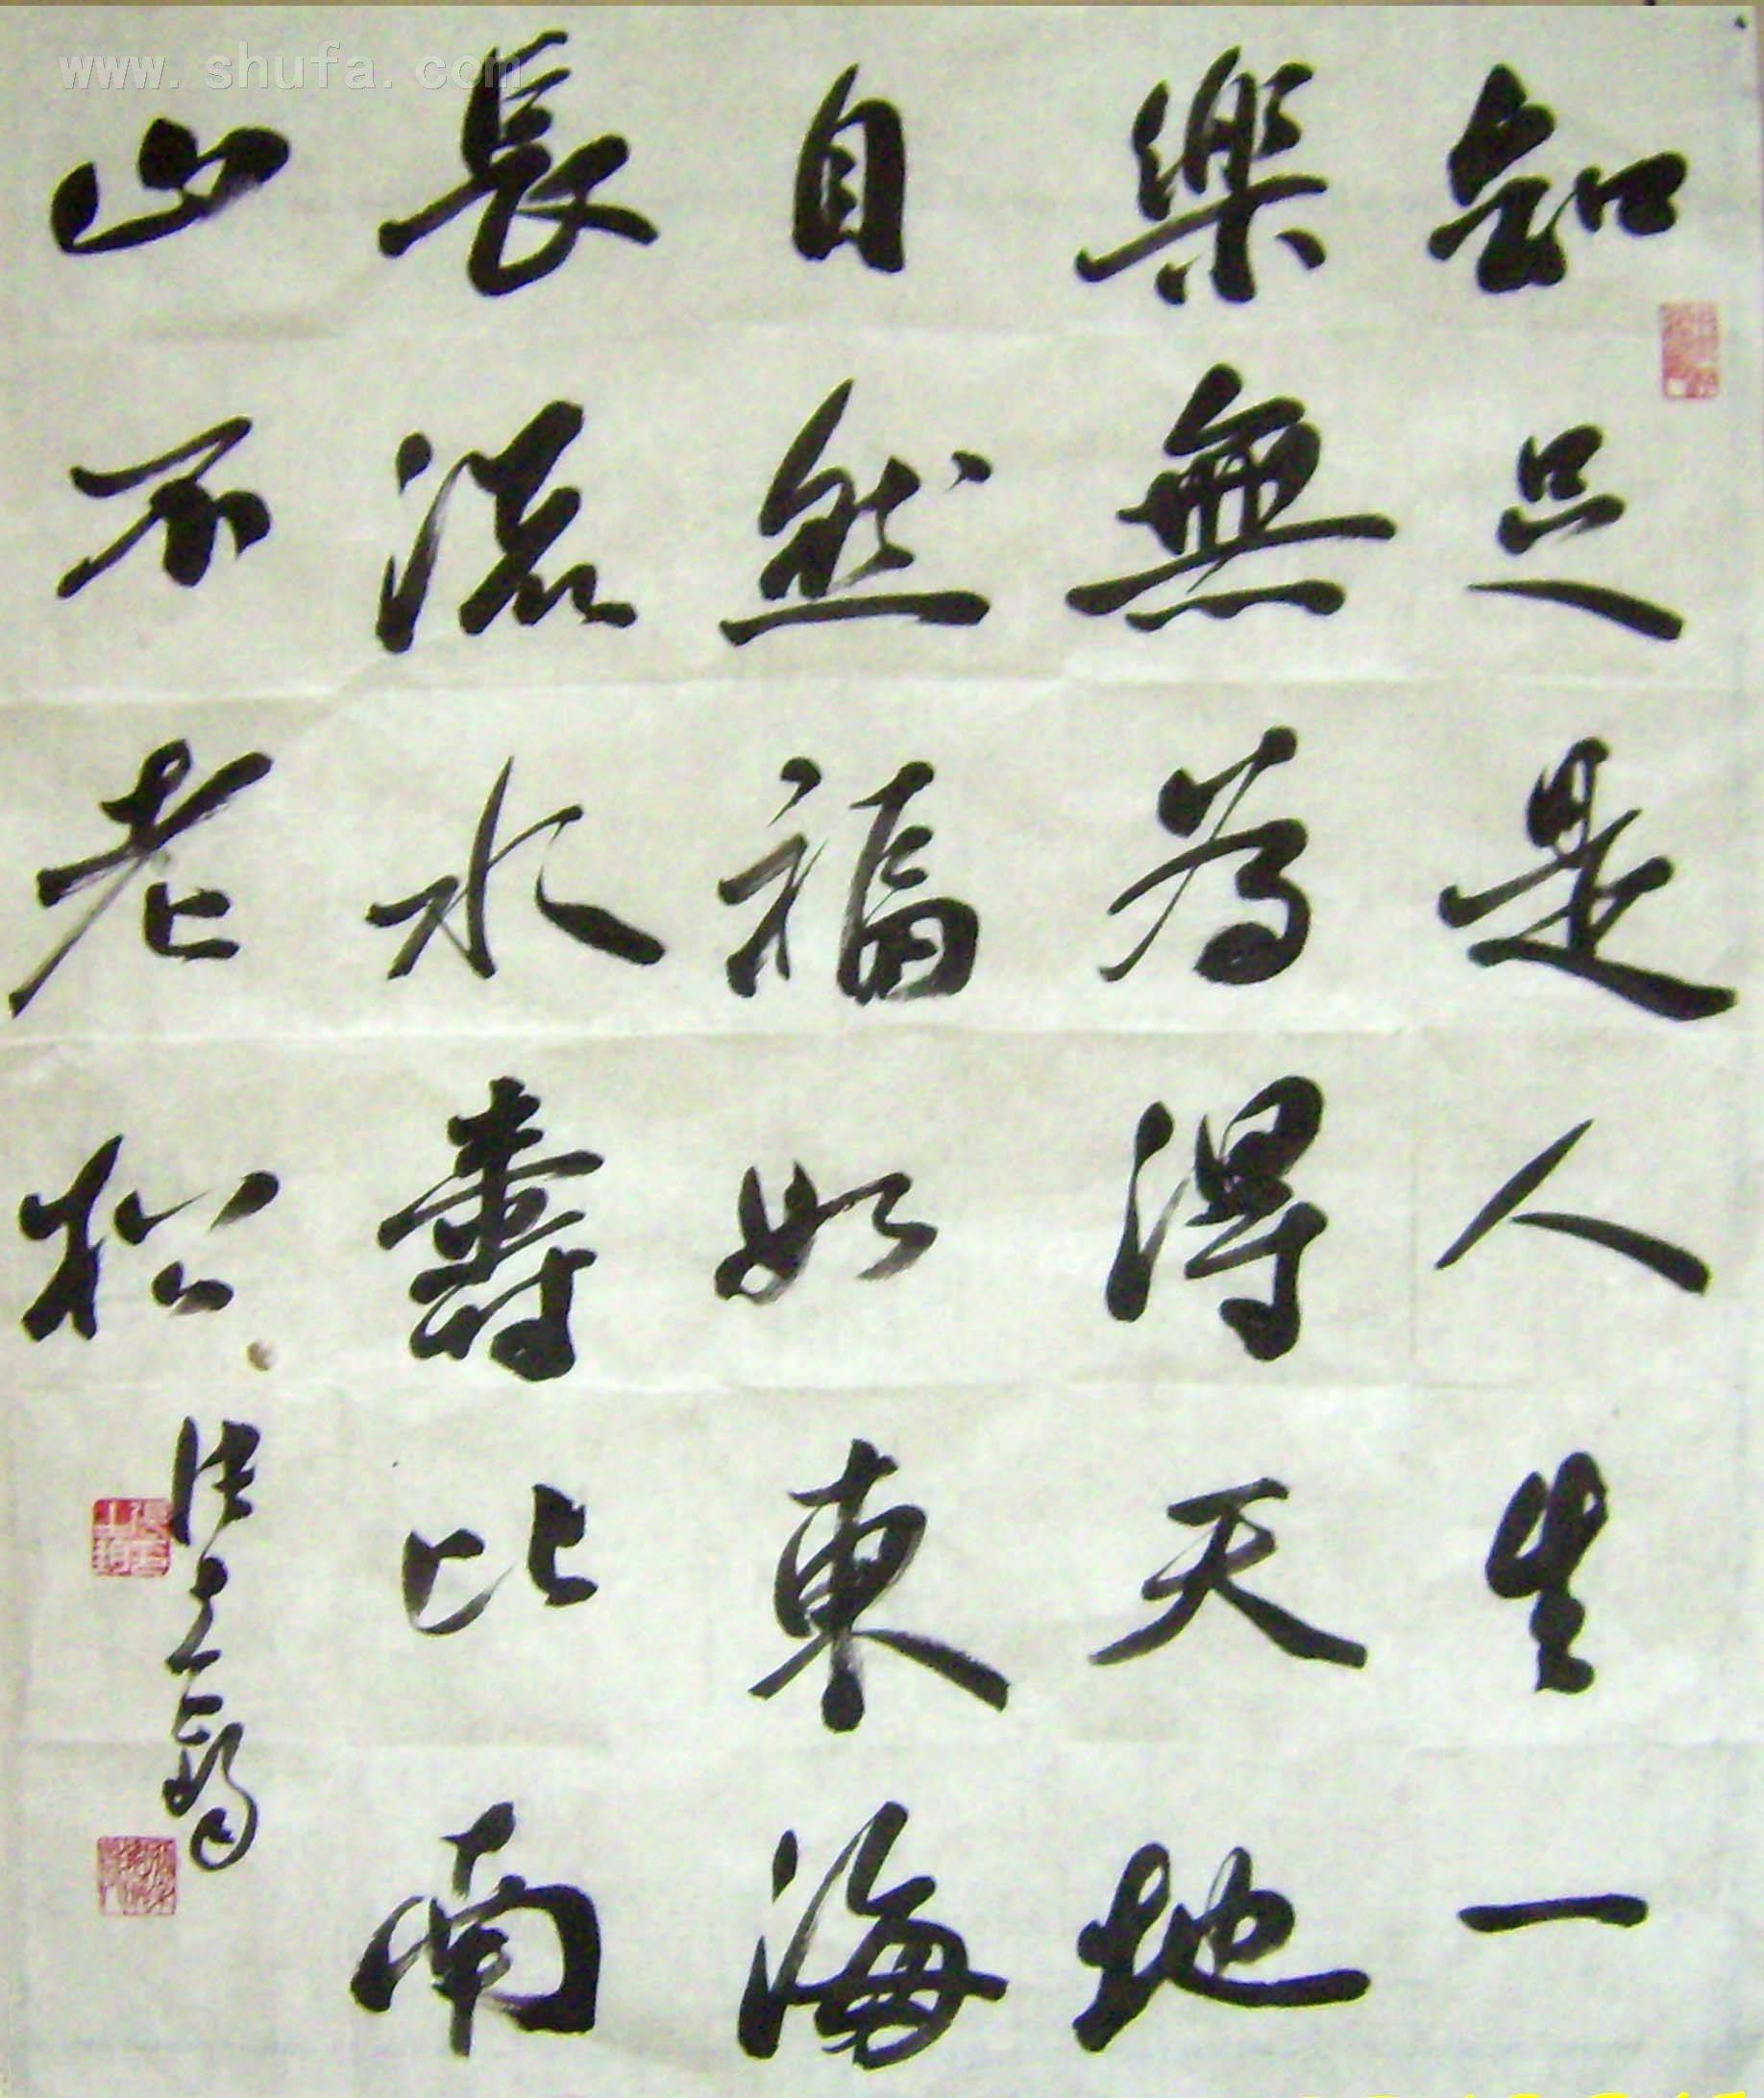 www.shufa.com
知足是人生一
樂無為得天地
自然福如東海
長流水壽比南
山不老松